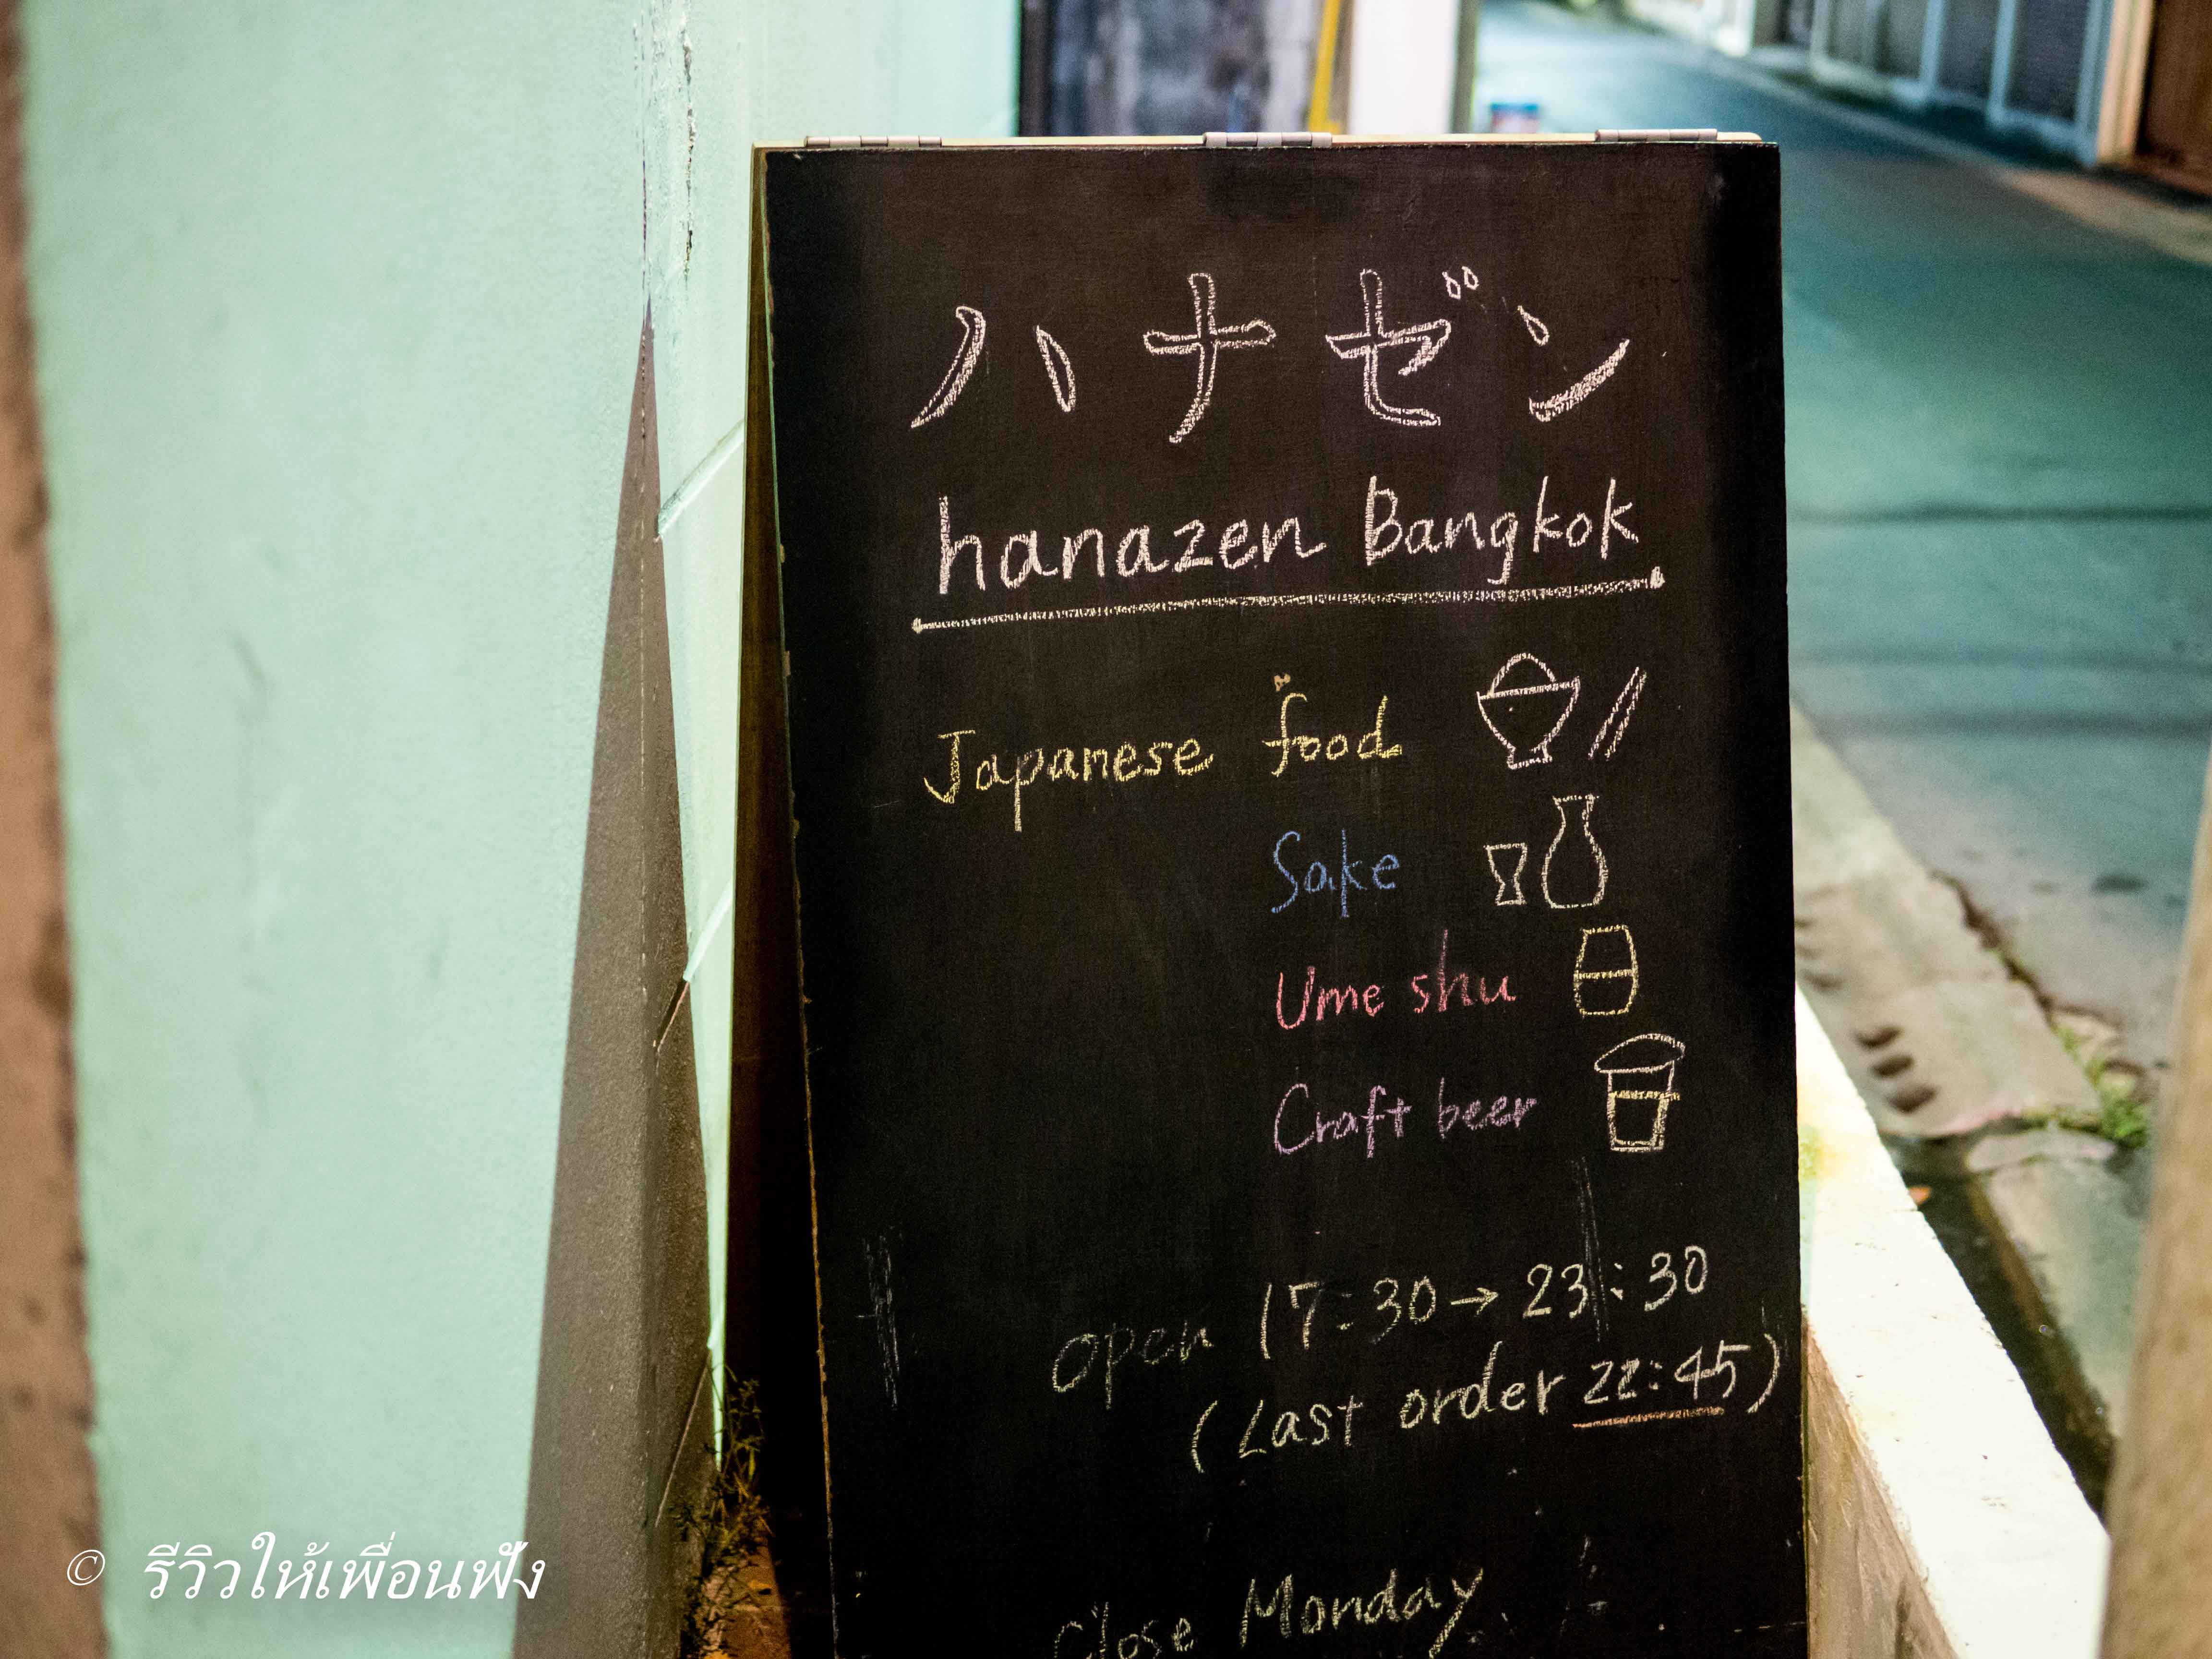 ハナゼン
hanazen Bangkok
Japanese food
Sake
Ume shu
Craft beer
Open 17:30→23:30
(Last order 22:45)
Close Monday
© รีวิวให้เพื่อนฟัง